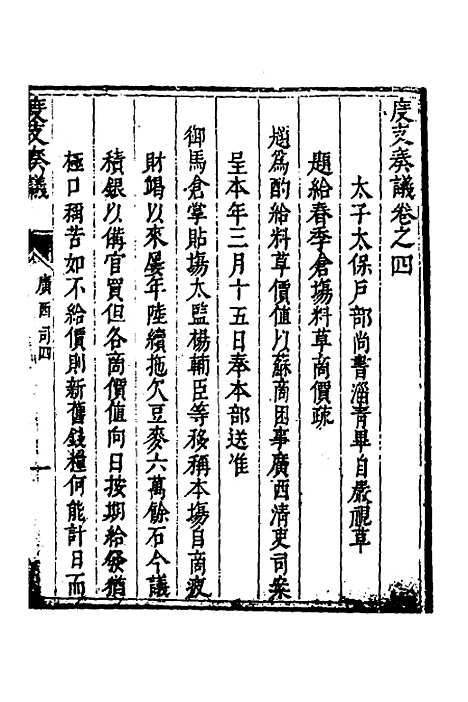 度支奏議卷之四
太子太保戶部尚書淄青畢自嚴視草
題給春季倉塲料草商價疏
題爲酌給料草價值以蘇商困事廣西清吏司案
呈本年三月十五日奉本部送准
御馬倉掌貼塲太監楊輔臣等移稱本塲自商疲
財竭以來屢年陸續拖欠豆麥六萬餘石今議
積銀以備官買但各商價值向日按期給發猶
極口稱苦如不給價則新舊錢糧何能計日而
度支奏議
廣西司四
一